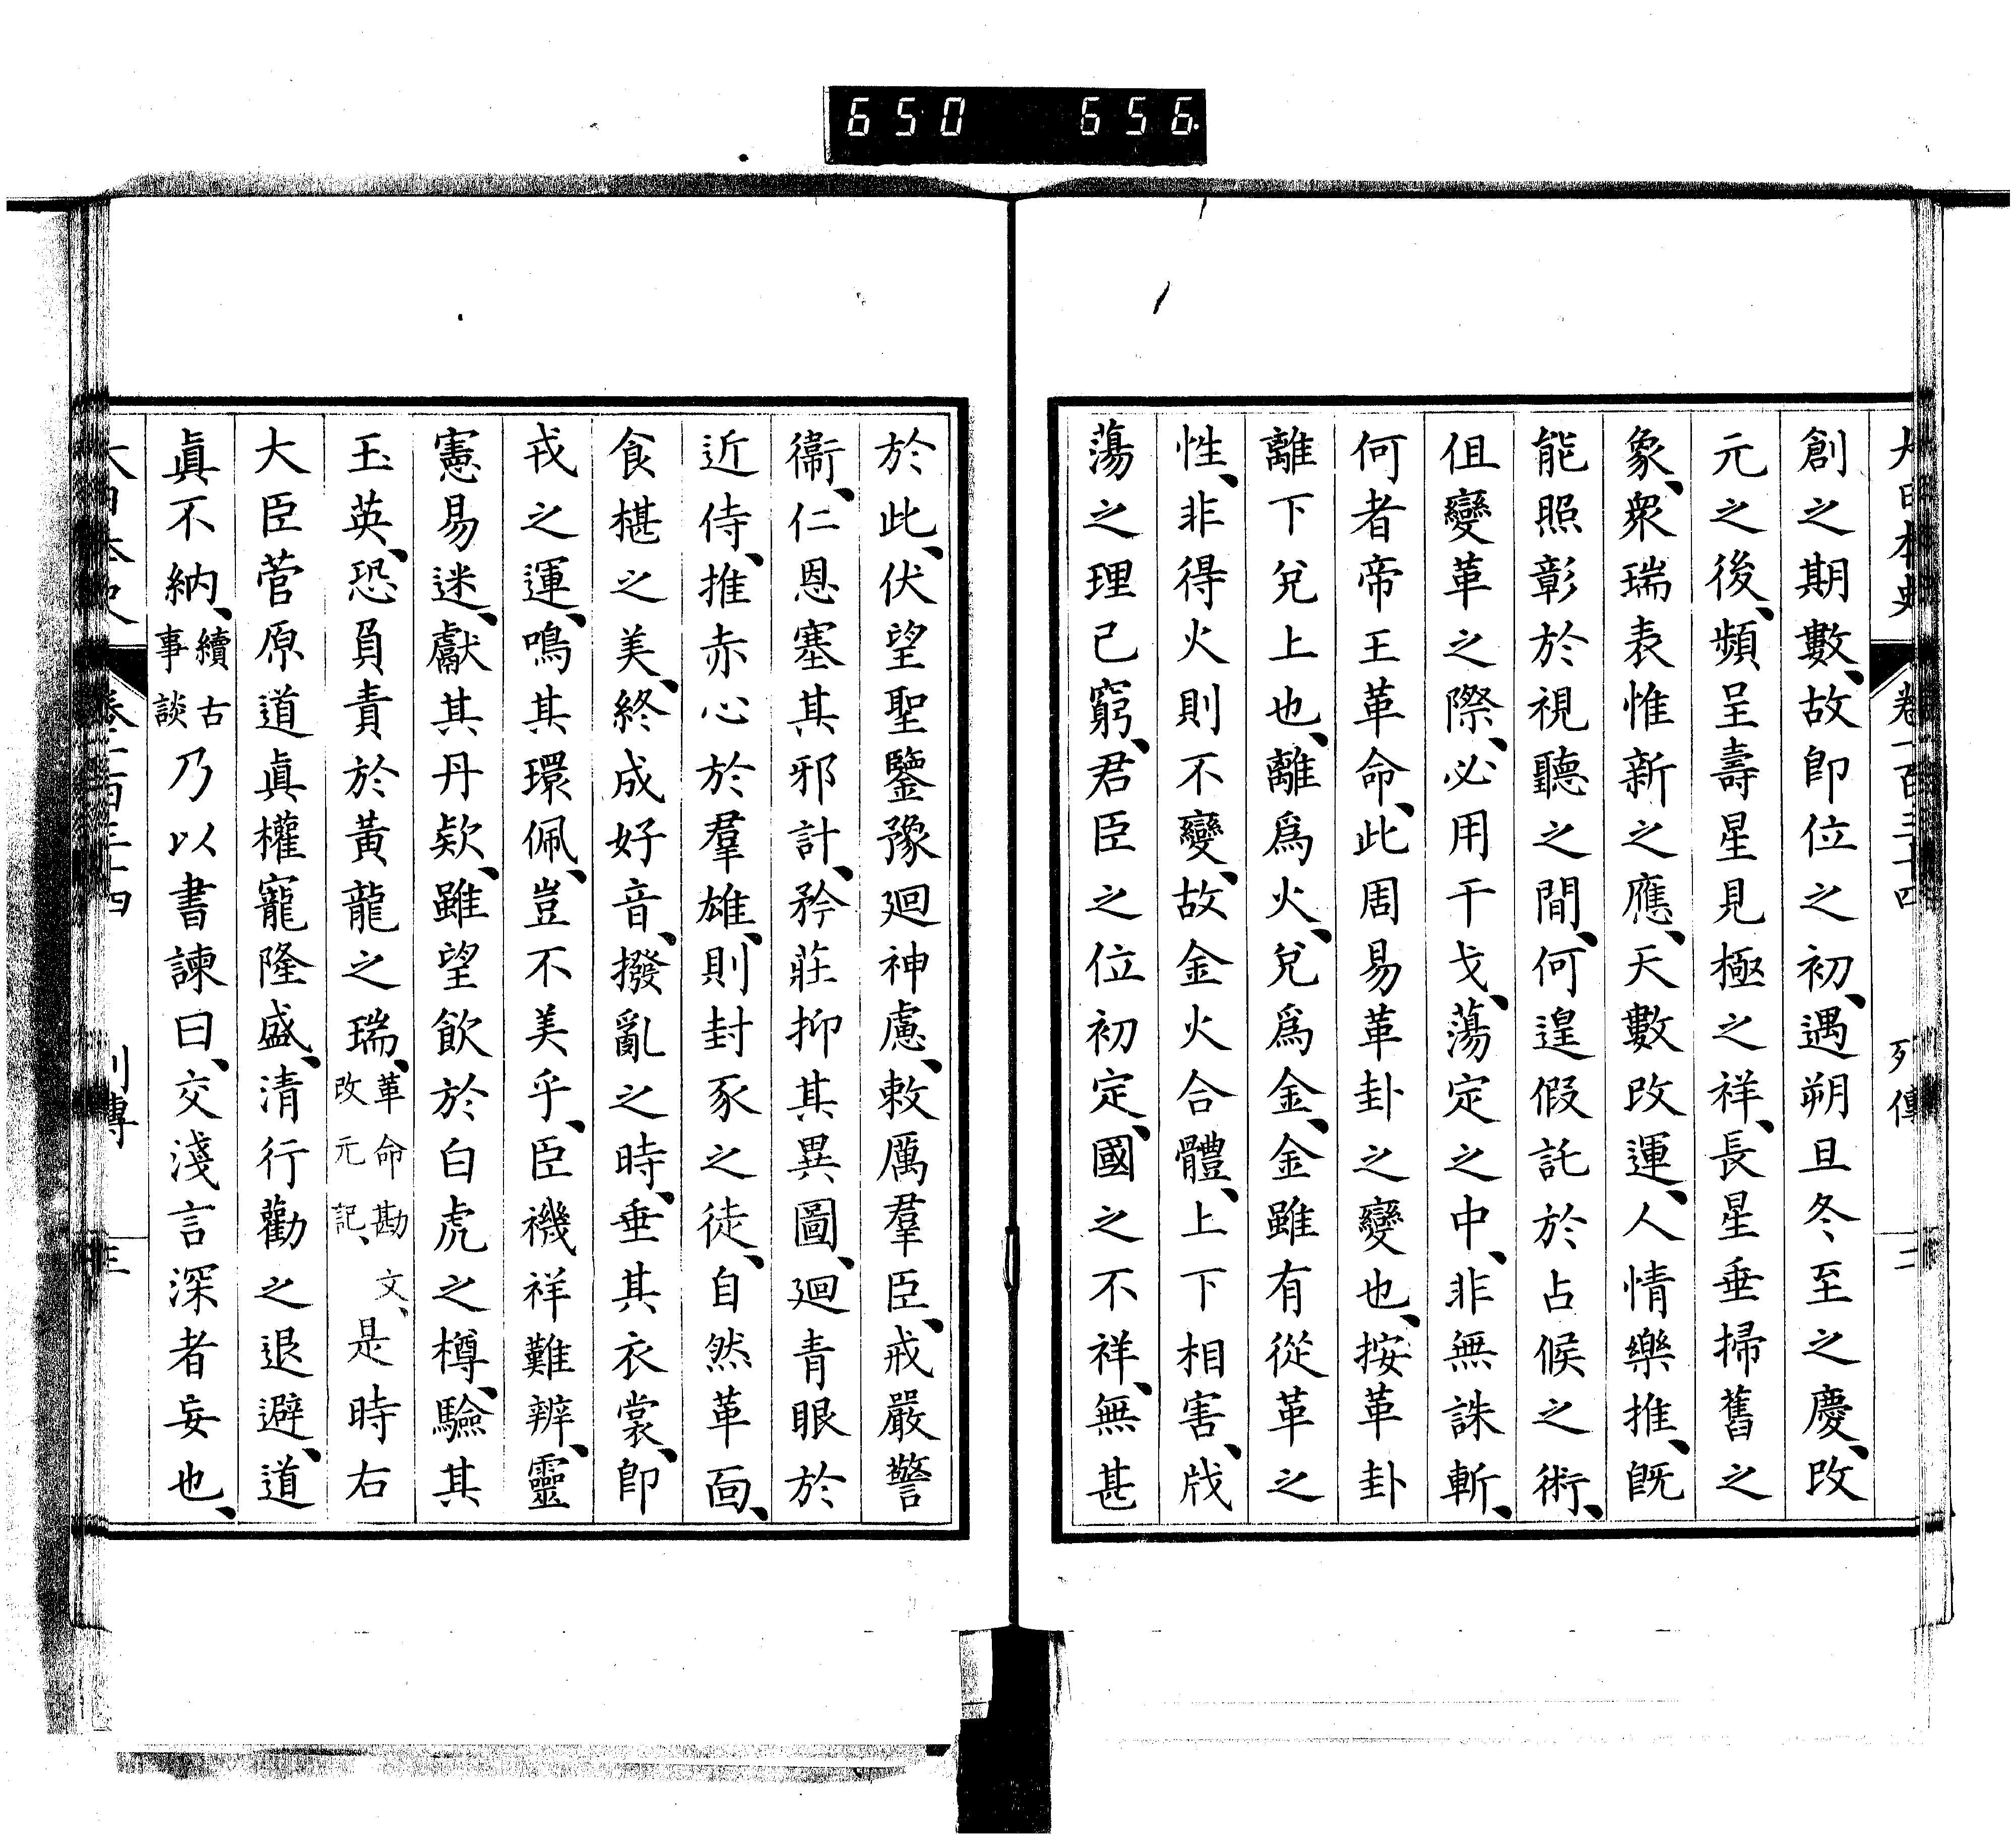 650 656
大日本史 卷一百三十四 列傳 二
創之期數、故卽位之初、遇朔旦冬至之慶、改
元之後、頻呈壽星見極之祥、長星垂掃舊之
象、衆瑞表惟新之應、天數改運、人情樂推、旣
能照彰於視聽之間、何遑假託於占候之術、
但變革之際、必用干戈、蕩定之中、非無誅斬、
何者帝王革命、此周易革卦之變也、按革卦
離下兌上也、離爲火、兌爲金、金雖有從革之
性、非得火則不變、故金火合體、上下相害、戕
蕩之理已窮、君臣之位初定、國之不祥、無甚
於此、伏望聖鑒豫廻神慮、敕厲羣臣、戒嚴警
衞、仁恩塞其邪計、矜莊抑其異圖、廻青眼於
近侍、推赤心於羣雄、則封豕之徒、自然革面、
食椹之美、終成好音、撥亂之時、垂其衣裳、卽
戎之運、鳴其環佩、豈不美乎、臣禨祥難辨、靈
憲易迷、獻其丹欵、雖望飮於白虎之樽、驗其
玉英、恐負責於黃龍之瑞、革命勘文、改元記、是時右
大臣菅原道眞權寵隆盛、清行勸之退避、道
眞不納、續古事談乃以書諫曰、交淺言深者妄也、
大日本史 卷一百三十四 列傳 三